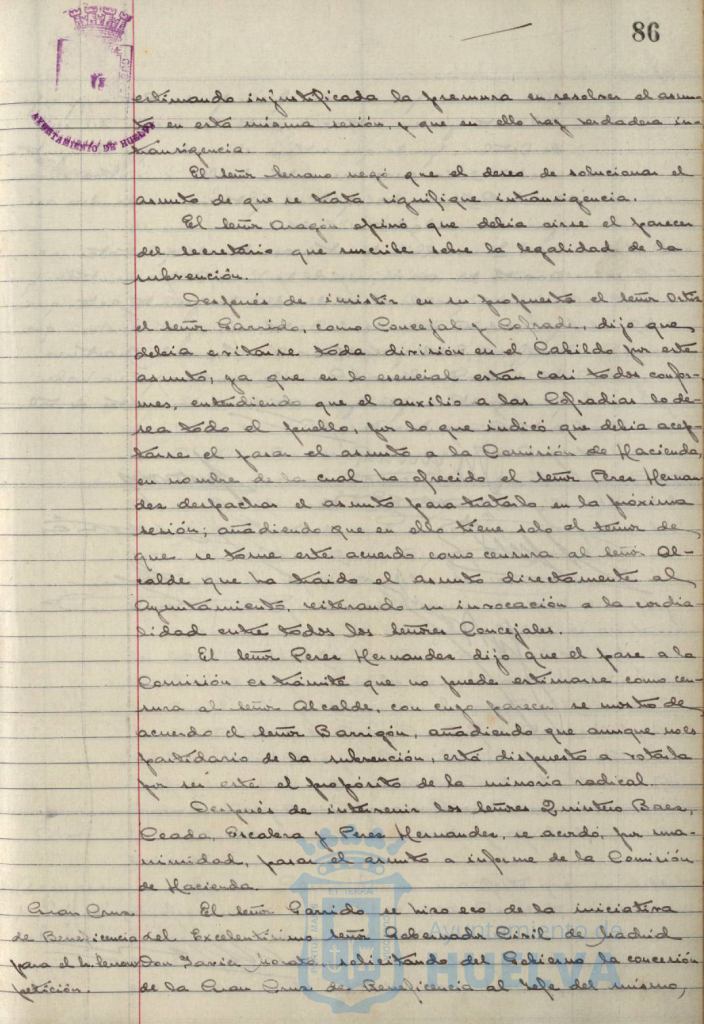 86
AYUNTAMIENTO DE HUELVA
estimando injustificada la premura en resolver el asun-
to en esta misma sesión, y que en ello hay verdadera in-
transigencia.
El señor Serrano negó que el deseo de solucionar el
asunto de que se trata signifique intransigencia.
El señor Aragón opinó que debia oirse el parecer
del secretario que suscribe sobre la legalidad de la
subvención.
Después de insistir en su propuesta el señor
el señor Garrido, como Concejal y Cofrade, dijo que
debia evitarse toda división en el Cabildo por este
asunto, ya que en lo esencial están casi todos confor-
mes, entendiendo que el auxilio a las Cofradias lo de-
sea todo el pueblo, por lo que indicó que debia acep-
tarse el pasar el asunto a la Comisión de Hacienda,
en nombre de la cual ha ofrecido el señor Perez Hernan
dez despachar el asunto para tratarlo en la próxima
sesión; añadiendo que en ello tiene solo el temor de
que se tome este acuerdo como censura al señor Al-
calde que ha traido el asunto directamente al
Ayuntamiento, reiterando su invocación a la cordia-
lidad entre todos los señores Concejales.
El señor Perez Hernandez dijo que el pase a la
Comisión es trámite que no puede estimarse como cen-
sura al señor Alcalde, con cuyo parecer se mostró de
acuerdo el señor Barrigón, añadiendo que aunque no es
partidario de la subvención, está dispuesto a votarla
por ser este el propósito de la minoria radical.
Después de intervenir los señores Quintero Baez,
Ceada, Escalera y Perez Hernandez, se acordó, por una-
nimidad, pasar el asunto a informe de la Comisión
de Hacienda.
Gran Cruz
de Beneficencia
para el Sr. Serrano
petición.
El señor Garrido se hizo eco de la iniciativa
del Excelentísimo señor Gobernador Civil de Madrid
Don Javier Morata solicitando del Gobierno la concesión
de la Gran Cruz de Beneficencia al Jefe del mismo,
Ayuntamiento de
HUELVA